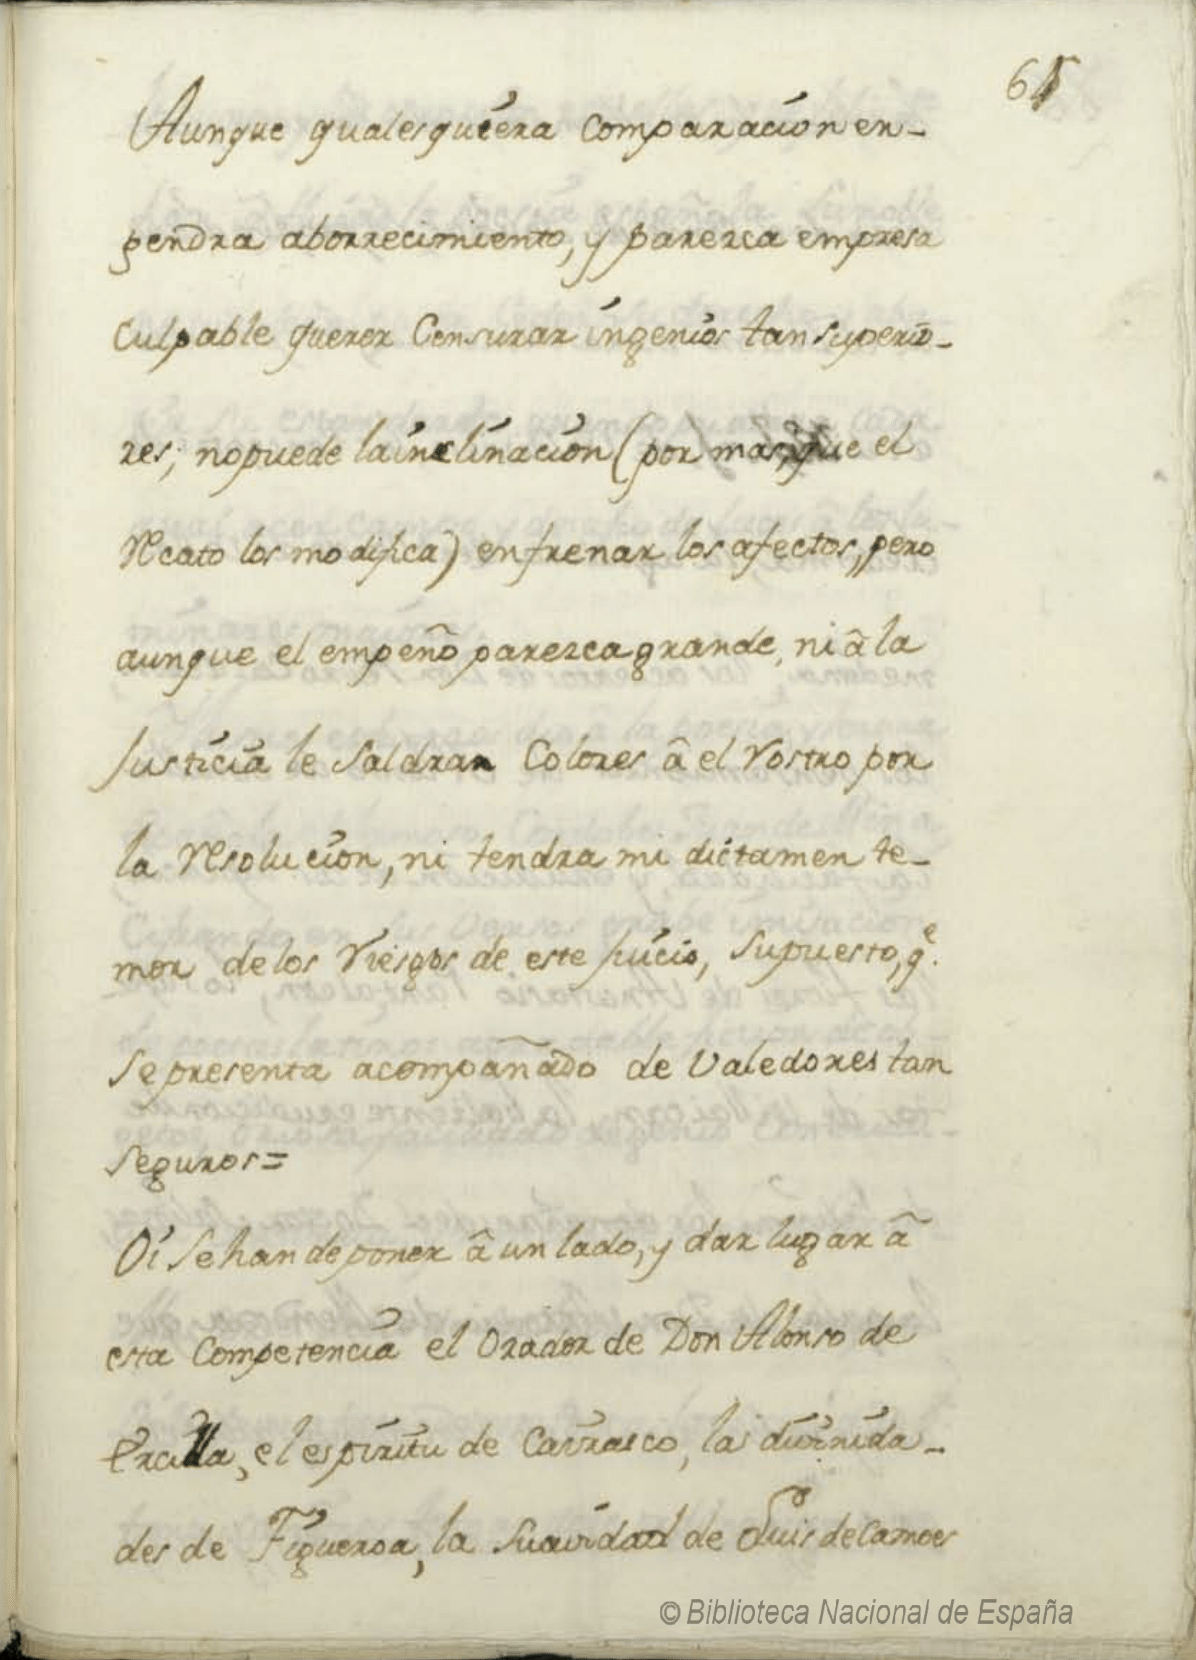 65
Aunque qualesquiera Comparacion en-
gendra aborrecimiento, y parezca empresa
Culpable querer Censurar ingenios tan superio-
res; no puede la inclinacion (por mas, que el
recato los modifica) enfrenar los afectos, pero
aunque el empeño parezca grande, ni â la
Justicia le Saldran Colores â el rostro por
la resolucion, ni tendra mi dictamen te-
mor de los riesgos de este Juicio, Supuesto, qe.
Se presenta acompañado de Valedores tan
Seguros=
Oi Se han de poner â un lado, y dar lugar â
esta Competencia el Orador de Don Alonso de
Ercilla, el espiritu de Carrasco, las divinida-
des de Figueroa, la Suavidad de Luis de Camoes
© Biblioteca Nacional de España